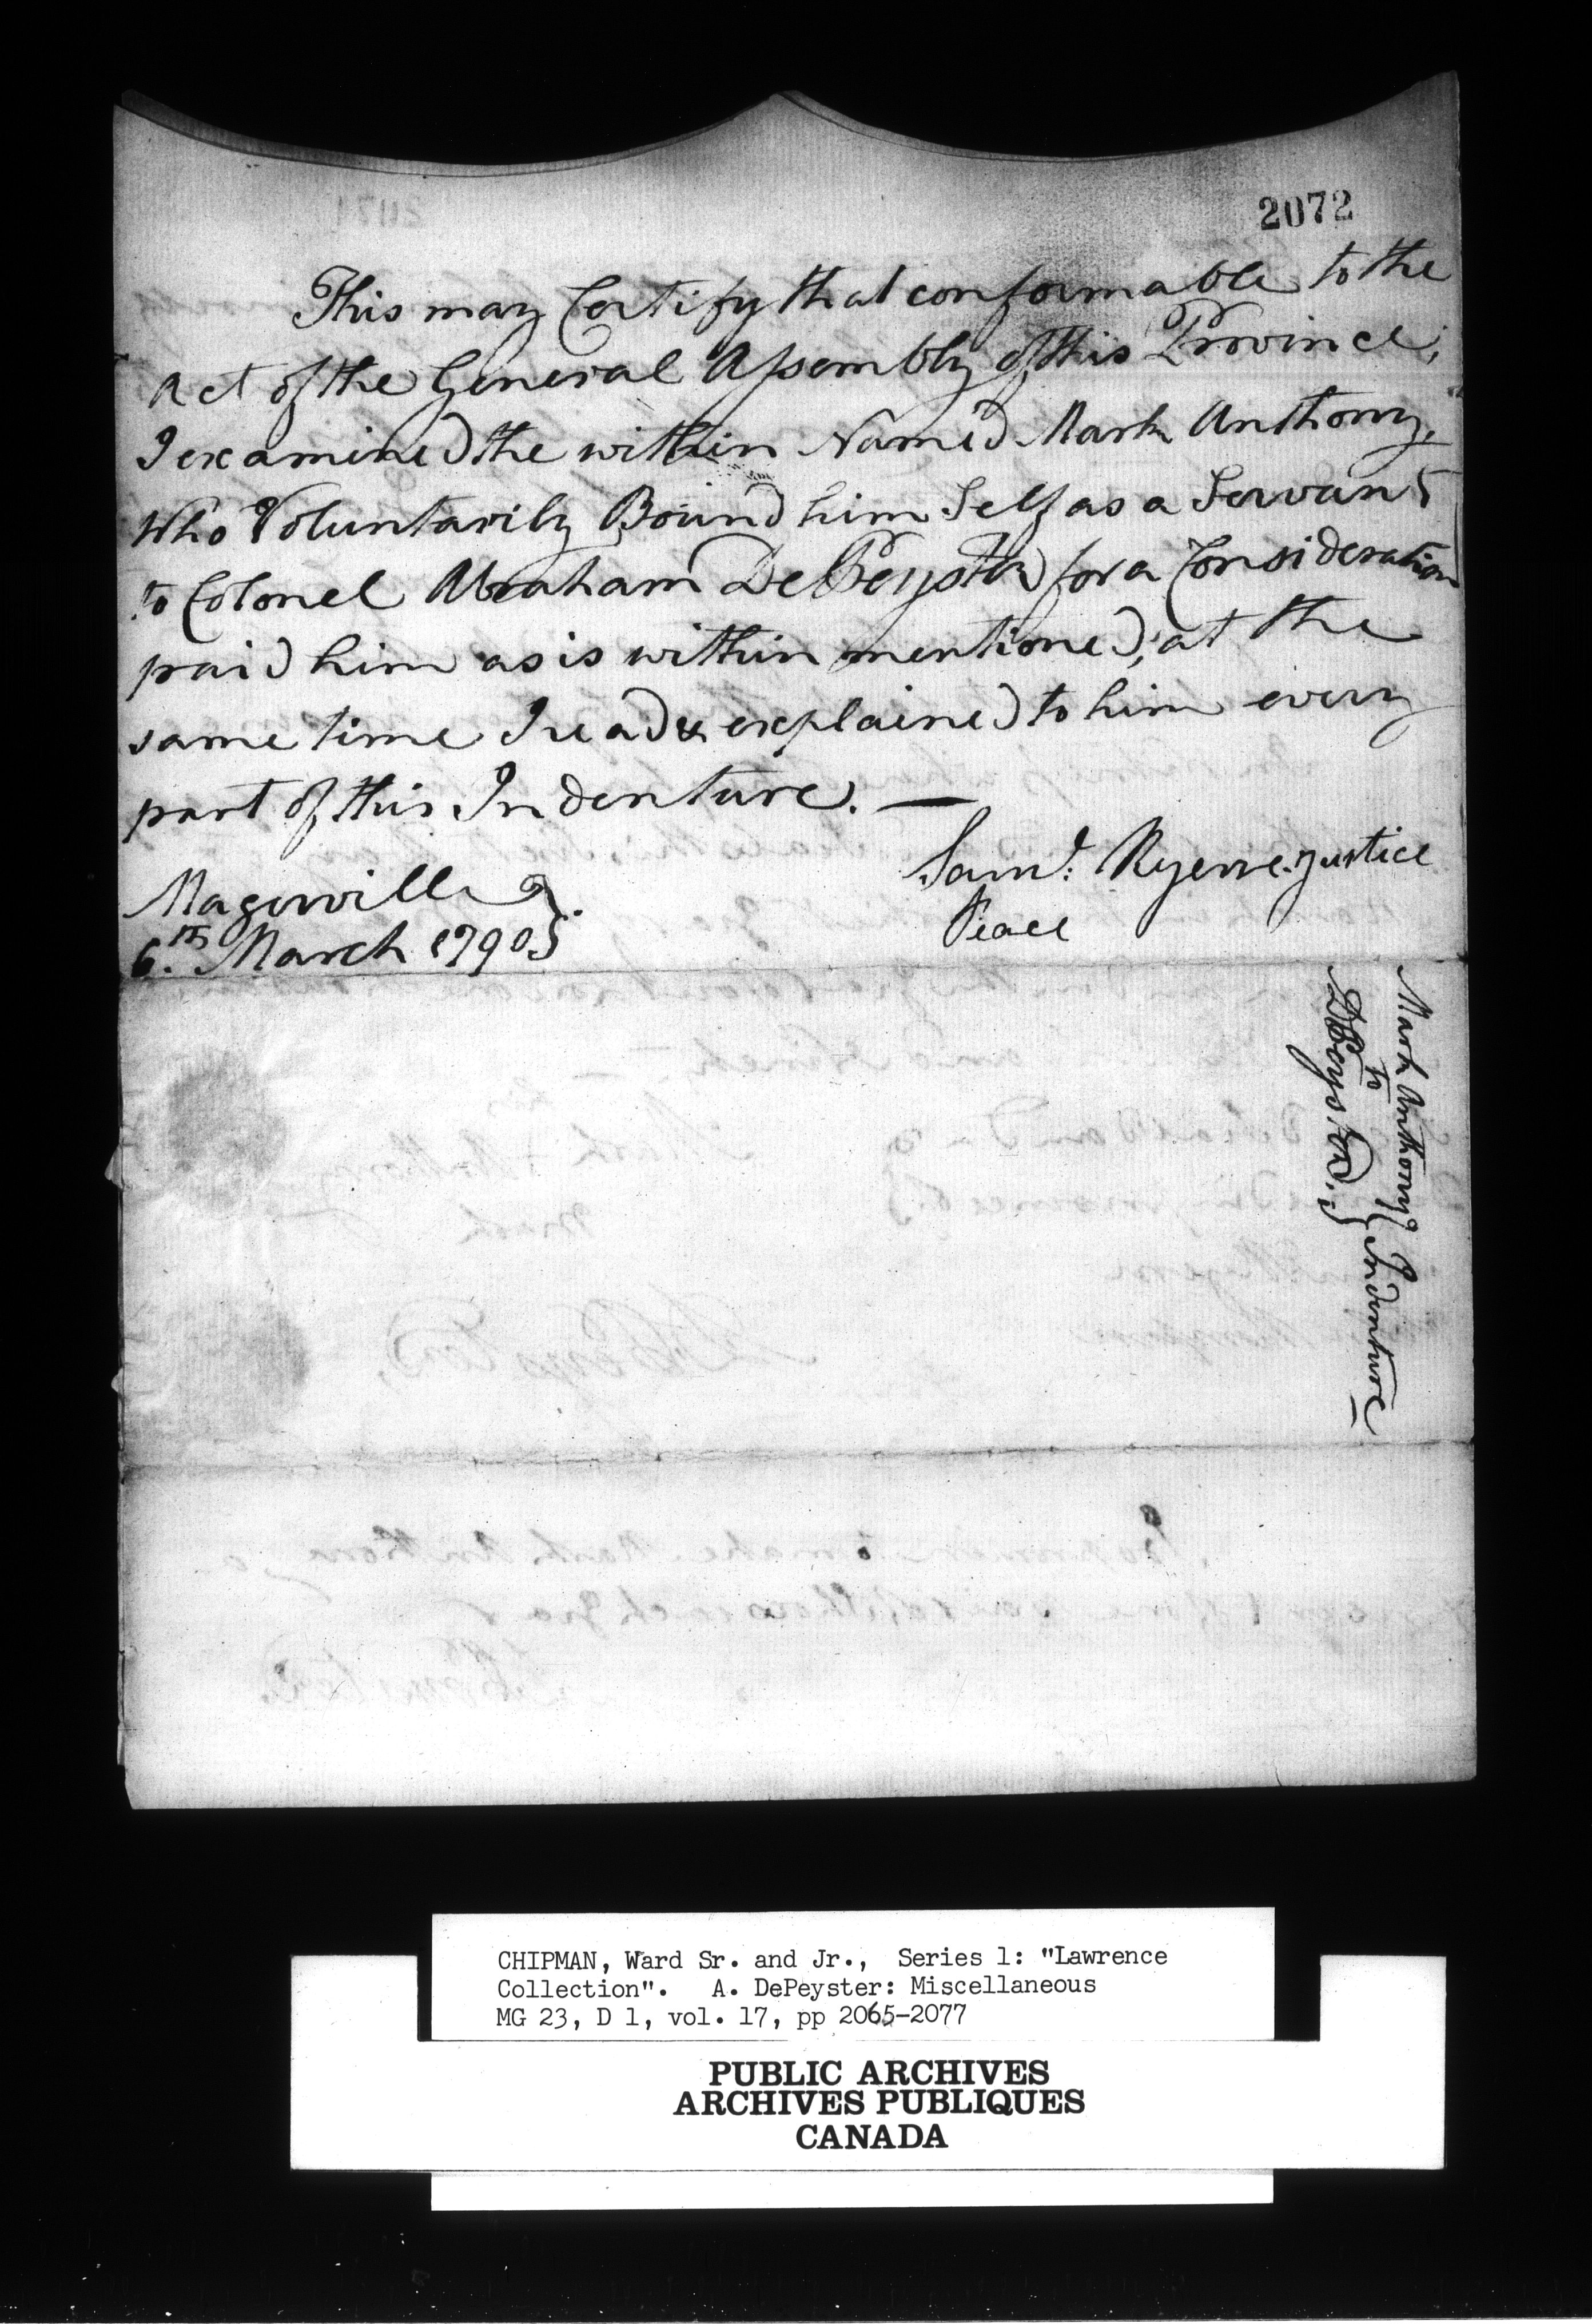 2072
This may Certify that conformable to the
Act of the General Assembly of this Province,
I examined the within Named Mark Anthony,
Who Voluntarily Bound him Self as a Servant
to Colonel Abraham DePeyster for a Consideration
paid him as is within mentioned, at the
same time I read & explained to him every
part of this Indenture. —
Saml: Ryerse. Justice
Peace
Magerville
6.th March 1790
Mark Anthony
to
DPeyster.
Indenture
CHIPMAN, Ward Sr. and Jr., Series 1: "Lawrence
Collection". A. DePeyster: Miscellaneous
MG 23, D 1, vol. 17, pp 2065-2077
PUBLIC ARCHIVES
ARCHIVES PUBLIQUES
CANADA